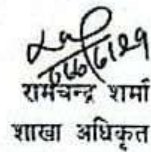 रामचन्द्र शर्मा
शाखा अधिकृत